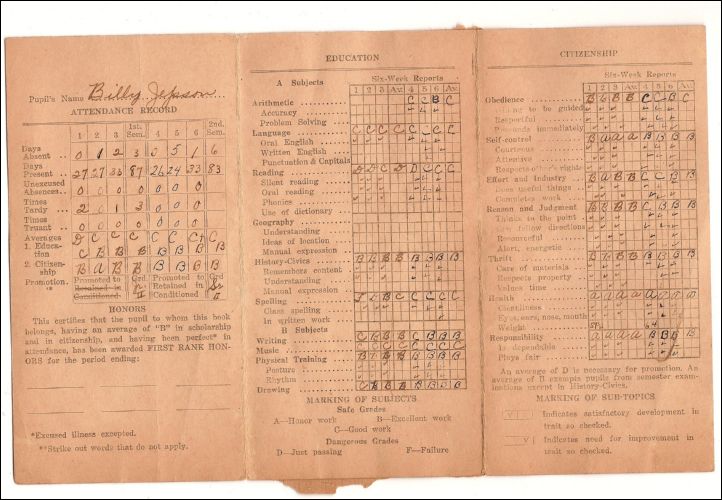 Pupil's Name Billy Jepson
ATTENDANCE RECORD
1 2 3 1st Sem. 4 5 6 2nd Sem.
Days Absent .. 0 1 2 3 0 5 1 6
Days Present .. 27 27 33 87 26 24 33 83
Unexcused Absences.. 0 0 0 0 0 0
Times Tardy .. 2 0 1 3 0 0 0
Times Truant .. 0 0 0 0 0 0
Averages
1. Education
2. Citizenship B A B B B B B B
Promotion.. Promoted to Retained in Conditioned Grd Promoted to Retained in Conditioned Grd
**
HONORS
This certifies that the pupil to whom this book
belongs, having an average of "B" in scholarship
and in citizenship, and having been perfect* in
attendance, has been awarded FIRST RANK HON-
ORS for the period ending:
*Excused illness excepted.
**Strike out words that do not apply.
EDUCATION
A Subjects Six-Week Reports
1 2 3 Av. 4 5 6 Av.
Arithmetic C C B C
Accuracy
Problem Solving
Language C C C C C C C C
Oral English
Written English
Punctuation & Capitals
Reading
Silent reading
Oral reading
Phonics
Use of dictionary
Geography
Understanding
Ideas of location
Manual expression
History-Civics B B B B B B B B
Remembers content
Understanding
Manual expression
Spelling
Class spelling
In written work
B Subjects
Writing C B B B C B B B
Music C C C C C C C C
Physical Training B B B B B B B B
Posture
Rhythm
Drawing C B B B B B B B
MARKING OF SUBJECTS
Safe Grades
A—Honor work B—Excellent work
C—Good work
Dangerous Grades
D—Just passing F—Failure
CITIZENSHIP
Six-Week Reports
1 2 3 Av. 4 5 6 Av.
Obedience B B B B C C B C
Willing to be guided
Respectful
Responds immediately
Self-control B A A A B B B B
Courteous
Attentive
Respects other's rights
Effort and Industry B A B B C C B C
Does useful things
Completes work
Reason and Judgment B B B B C B B B
Thinks to the point
Can follow directions
Resourceful
Alert, energetic
Thrift B B B B B B B B
Care of materials
Respects property
Values time
Health
Cleanliness
Eyes, ears, nose, mouth
Weight
Responsibility A A A A B B B B
Is dependable
Plays fair
An average of D is necessary for promotion. An
average of B exempts pupils from semester exam-
inations except in History-Civics.
MARKING OF SUB-TOPICS
V Indicates satisfactory development in
trait so checked.
Indicates need for improvement in
trait so checked.